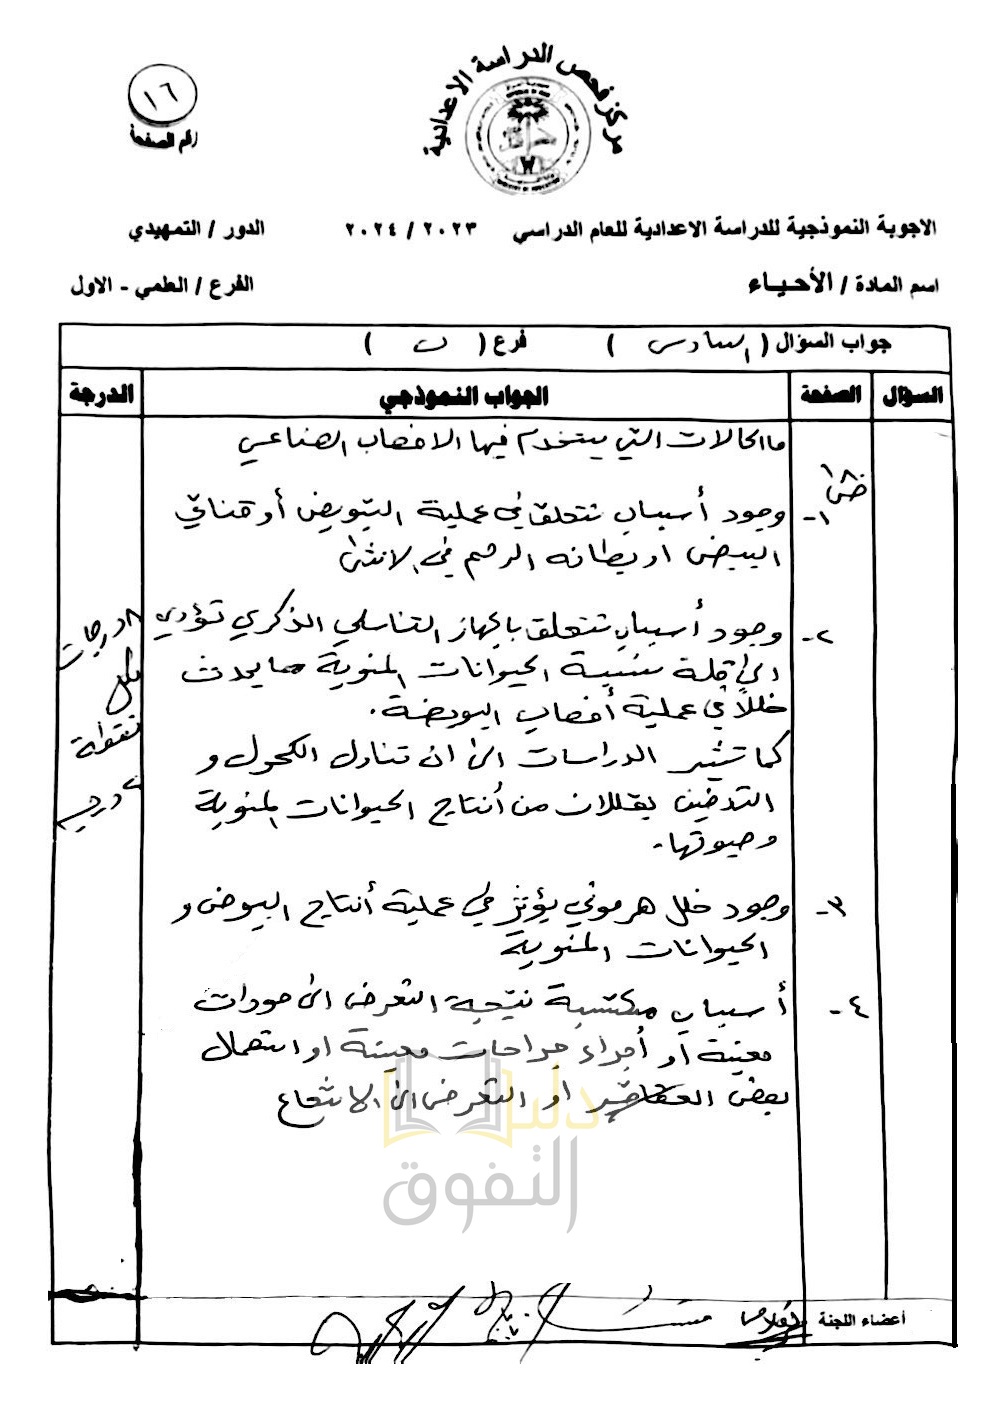 مركز فحص الدراسة الاعدادية
١٦
رقم الصفحة
الاجوبة النموذجية للدراسة الاعدادية للعام الدراسي ٢٠٢٣ / ٢٠٢٤ الدور / التمهيدي
اسم المادة / الأحياء الفرع / العلمي - الاول
جواب السؤال ( السادس ) فرع ( ب )
السؤال الصفحة الجواب النموذجي الدرجة
ما الحالات التي يستخدم فيها الاخصاب الصناعي
١- وجود أسباب تتعلق في عملية التبويض أو قناتي
البيض او بطانه الرحم في الانثى
٢- وجود أسباب تتعلق بالجهاز التناسلي الذكري تؤدي
الى قلة نسبة الحيوانات المنوية مما يحدث
خللاً في عملية أخصاب البويضة.
كما تشير الدراسات الى ان تناول الكحول و
التدخين يقللان من أنتاج الحيوانات المنوية
وحيوتها.
٣- وجود خلل هرموني يؤثر في عملية أنتاج البيوض و
الحيوانات المنوية
٤- أسباب مكتسبة نتيجة التعرض الى مودات
معينة أو أجراء جراحات معينة او استعمال
بعض العقاقير او التعرض الى الاشعاع
٨ درجات
لكل
نقطة
٢ درجة
دليل
التفوق
أعضاء اللجنة